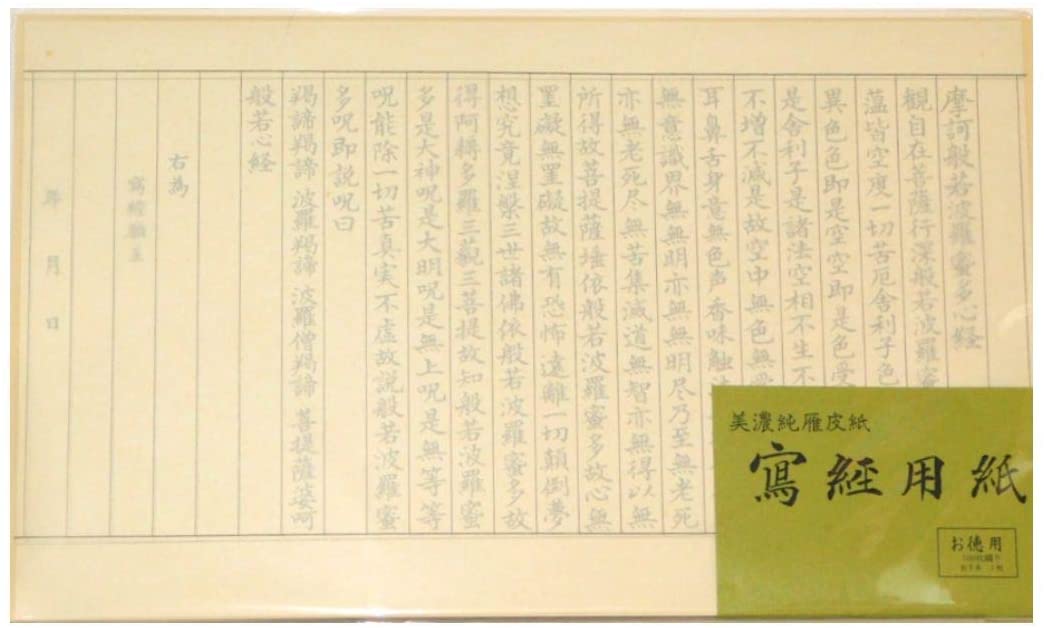 摩訶般若波羅蜜多心経
観自在菩薩行深般若波羅蜜
蘊皆空度一切苦厄舎利子色
異色色即是空空即是色受
是舎利子是諸法空相不生不
不増不減是故空中無色無受
耳鼻舌身意無色声香味触法
無意識界無無明亦無無明尽乃至無老死
亦無老死尽無苦集滅道無智亦無得以無
所得故菩提薩埵依般若波羅蜜多故心無
罣礙無罣礙故無有恐怖遠離一切顛倒夢
想究竟涅槃三世諸佛依般若波羅蜜多故
得阿耨多羅三藐三菩提故知般若波羅蜜
多是大神呪是大明呪是無上呪是無等等
呪能除一切苦真実不虚故説般若波羅蜜
多呪即説呪曰
羯諦羯諦 波羅羯諦 波羅僧羯諦 菩提薩婆呵
般若心経
右為
寫經願主
年 月 日
美濃純雁皮紙
寫経用紙
お徳用